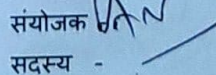 संयोजक
सदस्य -